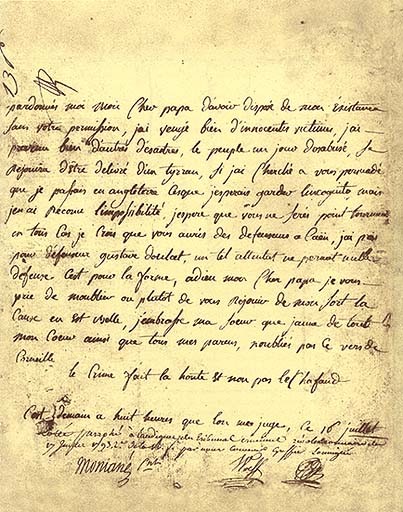 pardonnés moi mon Cher papa d'avoir disposé de mon existance
sans votre permission, j'ai vengé bien d'innocentes victimes, j'ai
prevenu bien d'autres désastres, le peuple un jour desabusé se
rejouira d'être delivré d'un tyrran, Si j'ai Cherché a vous persuadé
que je passais en angleterre Cesque jesperais garder lincognito mais
jen ai reconnu limpossibilité, jespere que vous ne serés point tourmenté
en tous Cas je Crois que vous auriés des defenseurs a Caen, j'ai pris
pour défenseur gustave doulcet, un tel attentat ne permet nulle
défense Cest pour la forme, adieu mon Cher papa je vous
prie de moublier ou plutôt de vous rejouir de mon sort la
Cause en est belle, jembrasse ma soeur que jaime de tout
mon Coeur ainsi que tous mes parens, noubliés pas Ce vers de
Corneille
le Crime fait la honte et non pas l'échafaud
C'est demain a huit heures que lon me juge, Ce 16 juillet
tribunal criminel
Montané